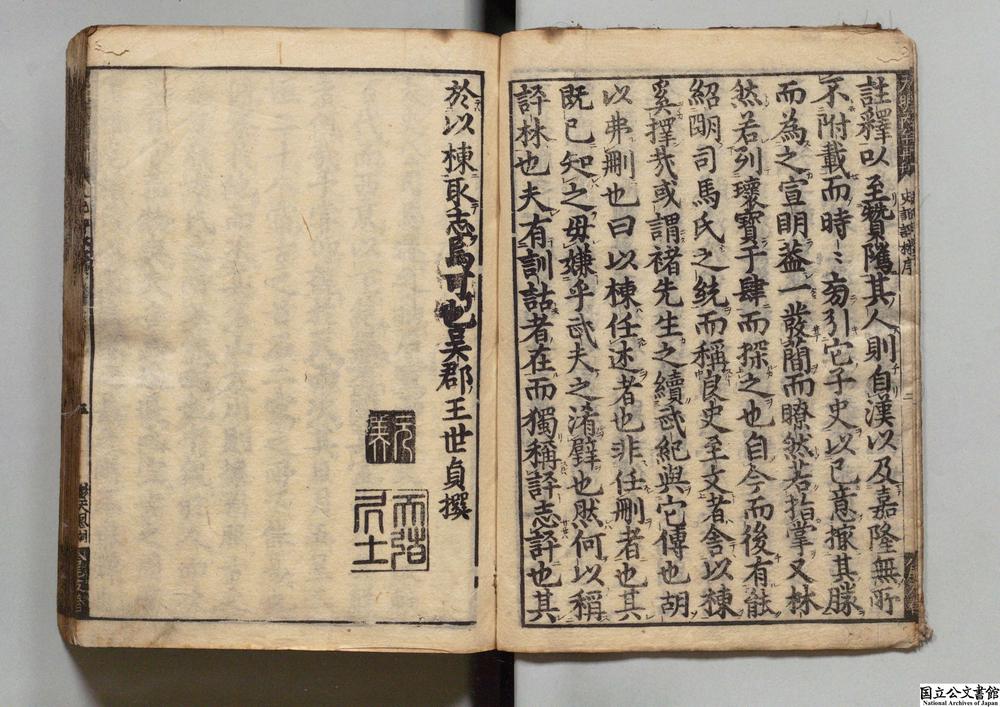 註釋以至贊隲其人則自漢以及嘉隆無所
不附載而時〻旁引它子史以己意撡其勝
而為之宣明葢一發簡而瞭然若指掌又林
然若列瓌寶于肆而探之也自今而後有能
紹明司馬氏之統而稱良史至文者舍以棟
奚擇哉或謂褚先生之續武紀與它傳也胡
以弗刪也曰以棟任述者也非任刪者也其
既已知之毋嫌乎武夫之淆璧也然何以稱
評林也夫有訓詁者在而獨稱評志評也其
於以棟取志焉可也吳郡王世貞撰
元美
天弢居士
国立公文書館
National Archives of Japan